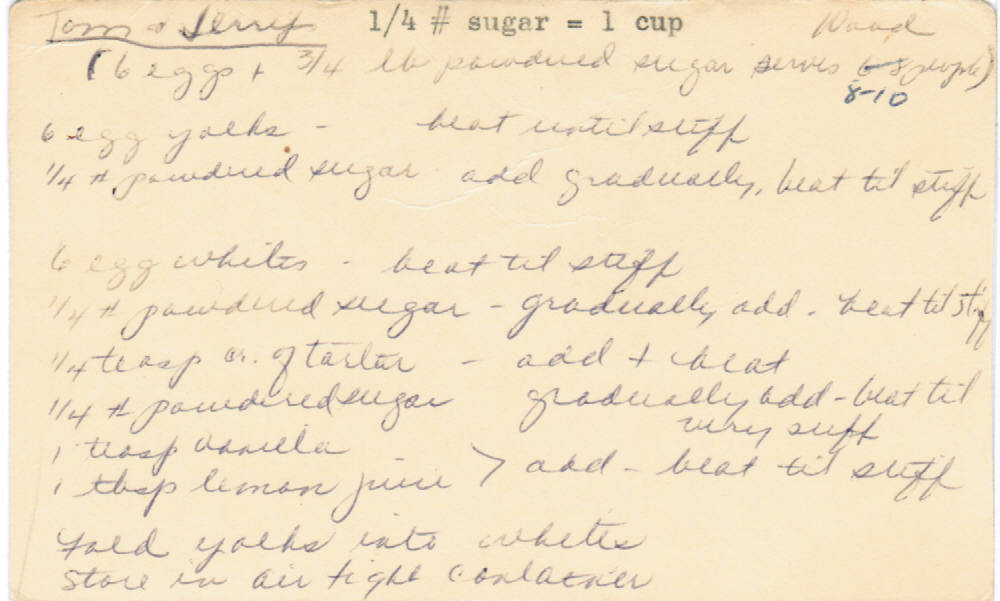 Tom & Jerrys 1/4 # sugar = 1 cup Wood
(6 eggs + 3/4 lb powdered sugar serves 6-8 people)
8-10
6 egg yolks - beat until stiff
1/4 # powdered sugar add gradually, beat til stiff
6 egg whites - beat til stiff
1/4 # powdered sugar - gradually add. beat til stiff
1/4 teasp cr. of tartar - add + beat
1/4 # powdered sugar gradually add - beat til
very stiff
1 teasp vanilla
1 tbsp lemon juice > add - beat til stiff
Fold yolks into whites
Store in air tight container